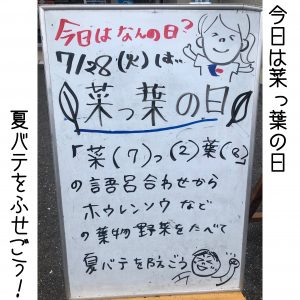 今日は菜っ葉の日
今日はなんの日?
7/28(火)は…
菜っ葉の日
「菜(7)っ(2)葉(8)
の語呂合わせから
ホウレンソウなど
の葉物野菜をたべて
夏バテを防ごう
夏バテをふせごう!